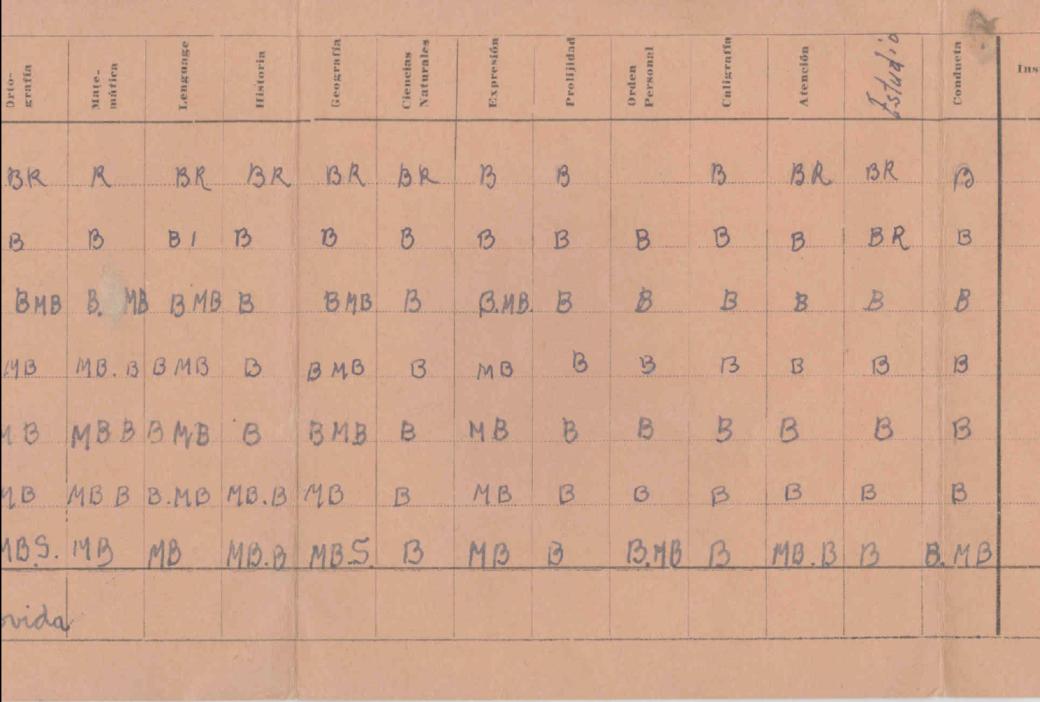 Orto-grafía Mate-mática Lenguage Historia Geografía Ciencias Naturales Expresión Prolijidad Orden Personal Caligrafía Atención Estudio Conducta Ins
BR R BR BR BR BR B B B BR BR B
B B B I B B B B B B B B BR B
BMB B. MB B MB B B MB B B.MB. B B B B B B
MB MB. B B MB B B MB B MB B B B B B B
MB MB B B MB B B MB B MB B B B B B B
MB MB B B.MB MB.B MB B MB B B B B B B
MB.S. MB MB MB.B MB.S. B MB B B.MB B MB.B B B.MB
ovida